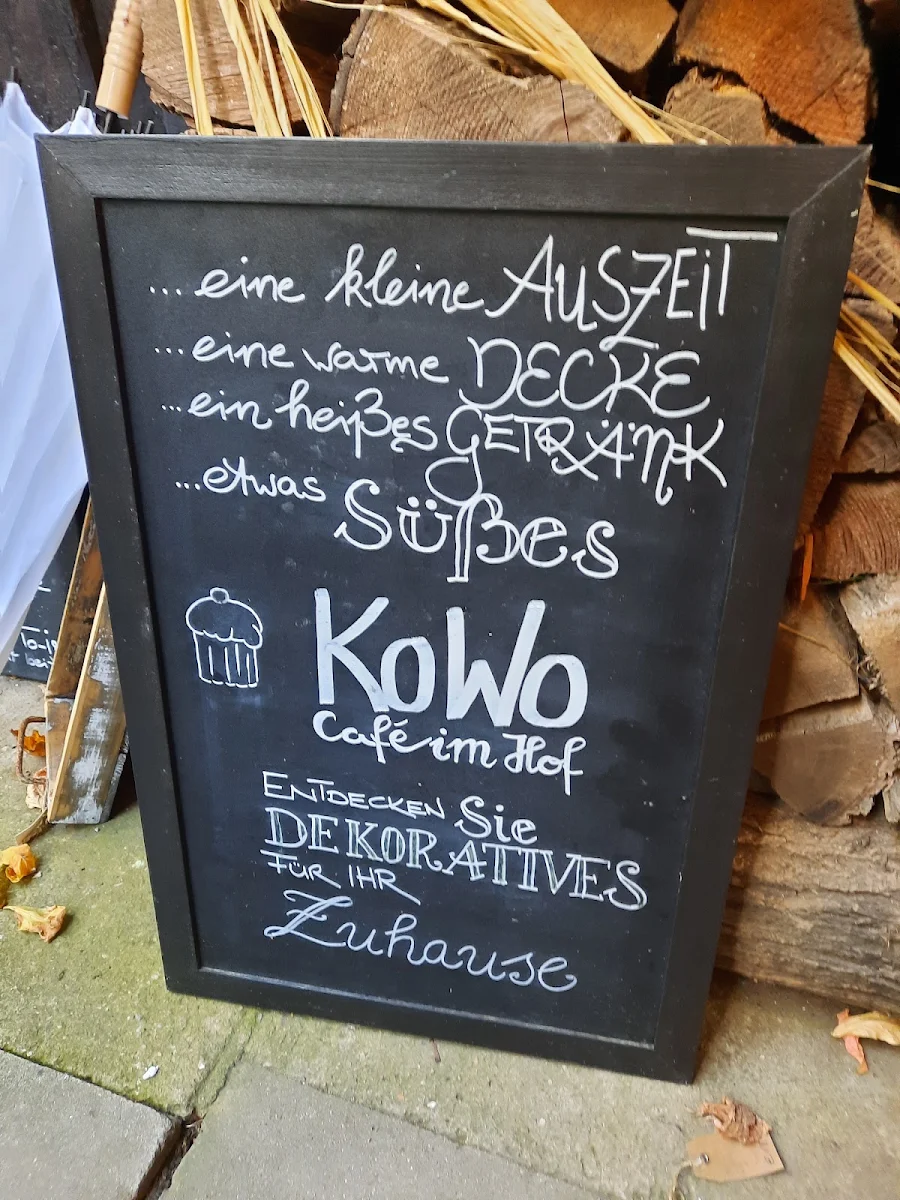 ...eine kleine AUSZEIT
...eine warme DECKE
...ein heißes GETRÄNK
...etwas Süßes
KoWo
Café im Hof
ENTDECKEN Sie
DEKORATIVES
FÜR IHR
Zuhause